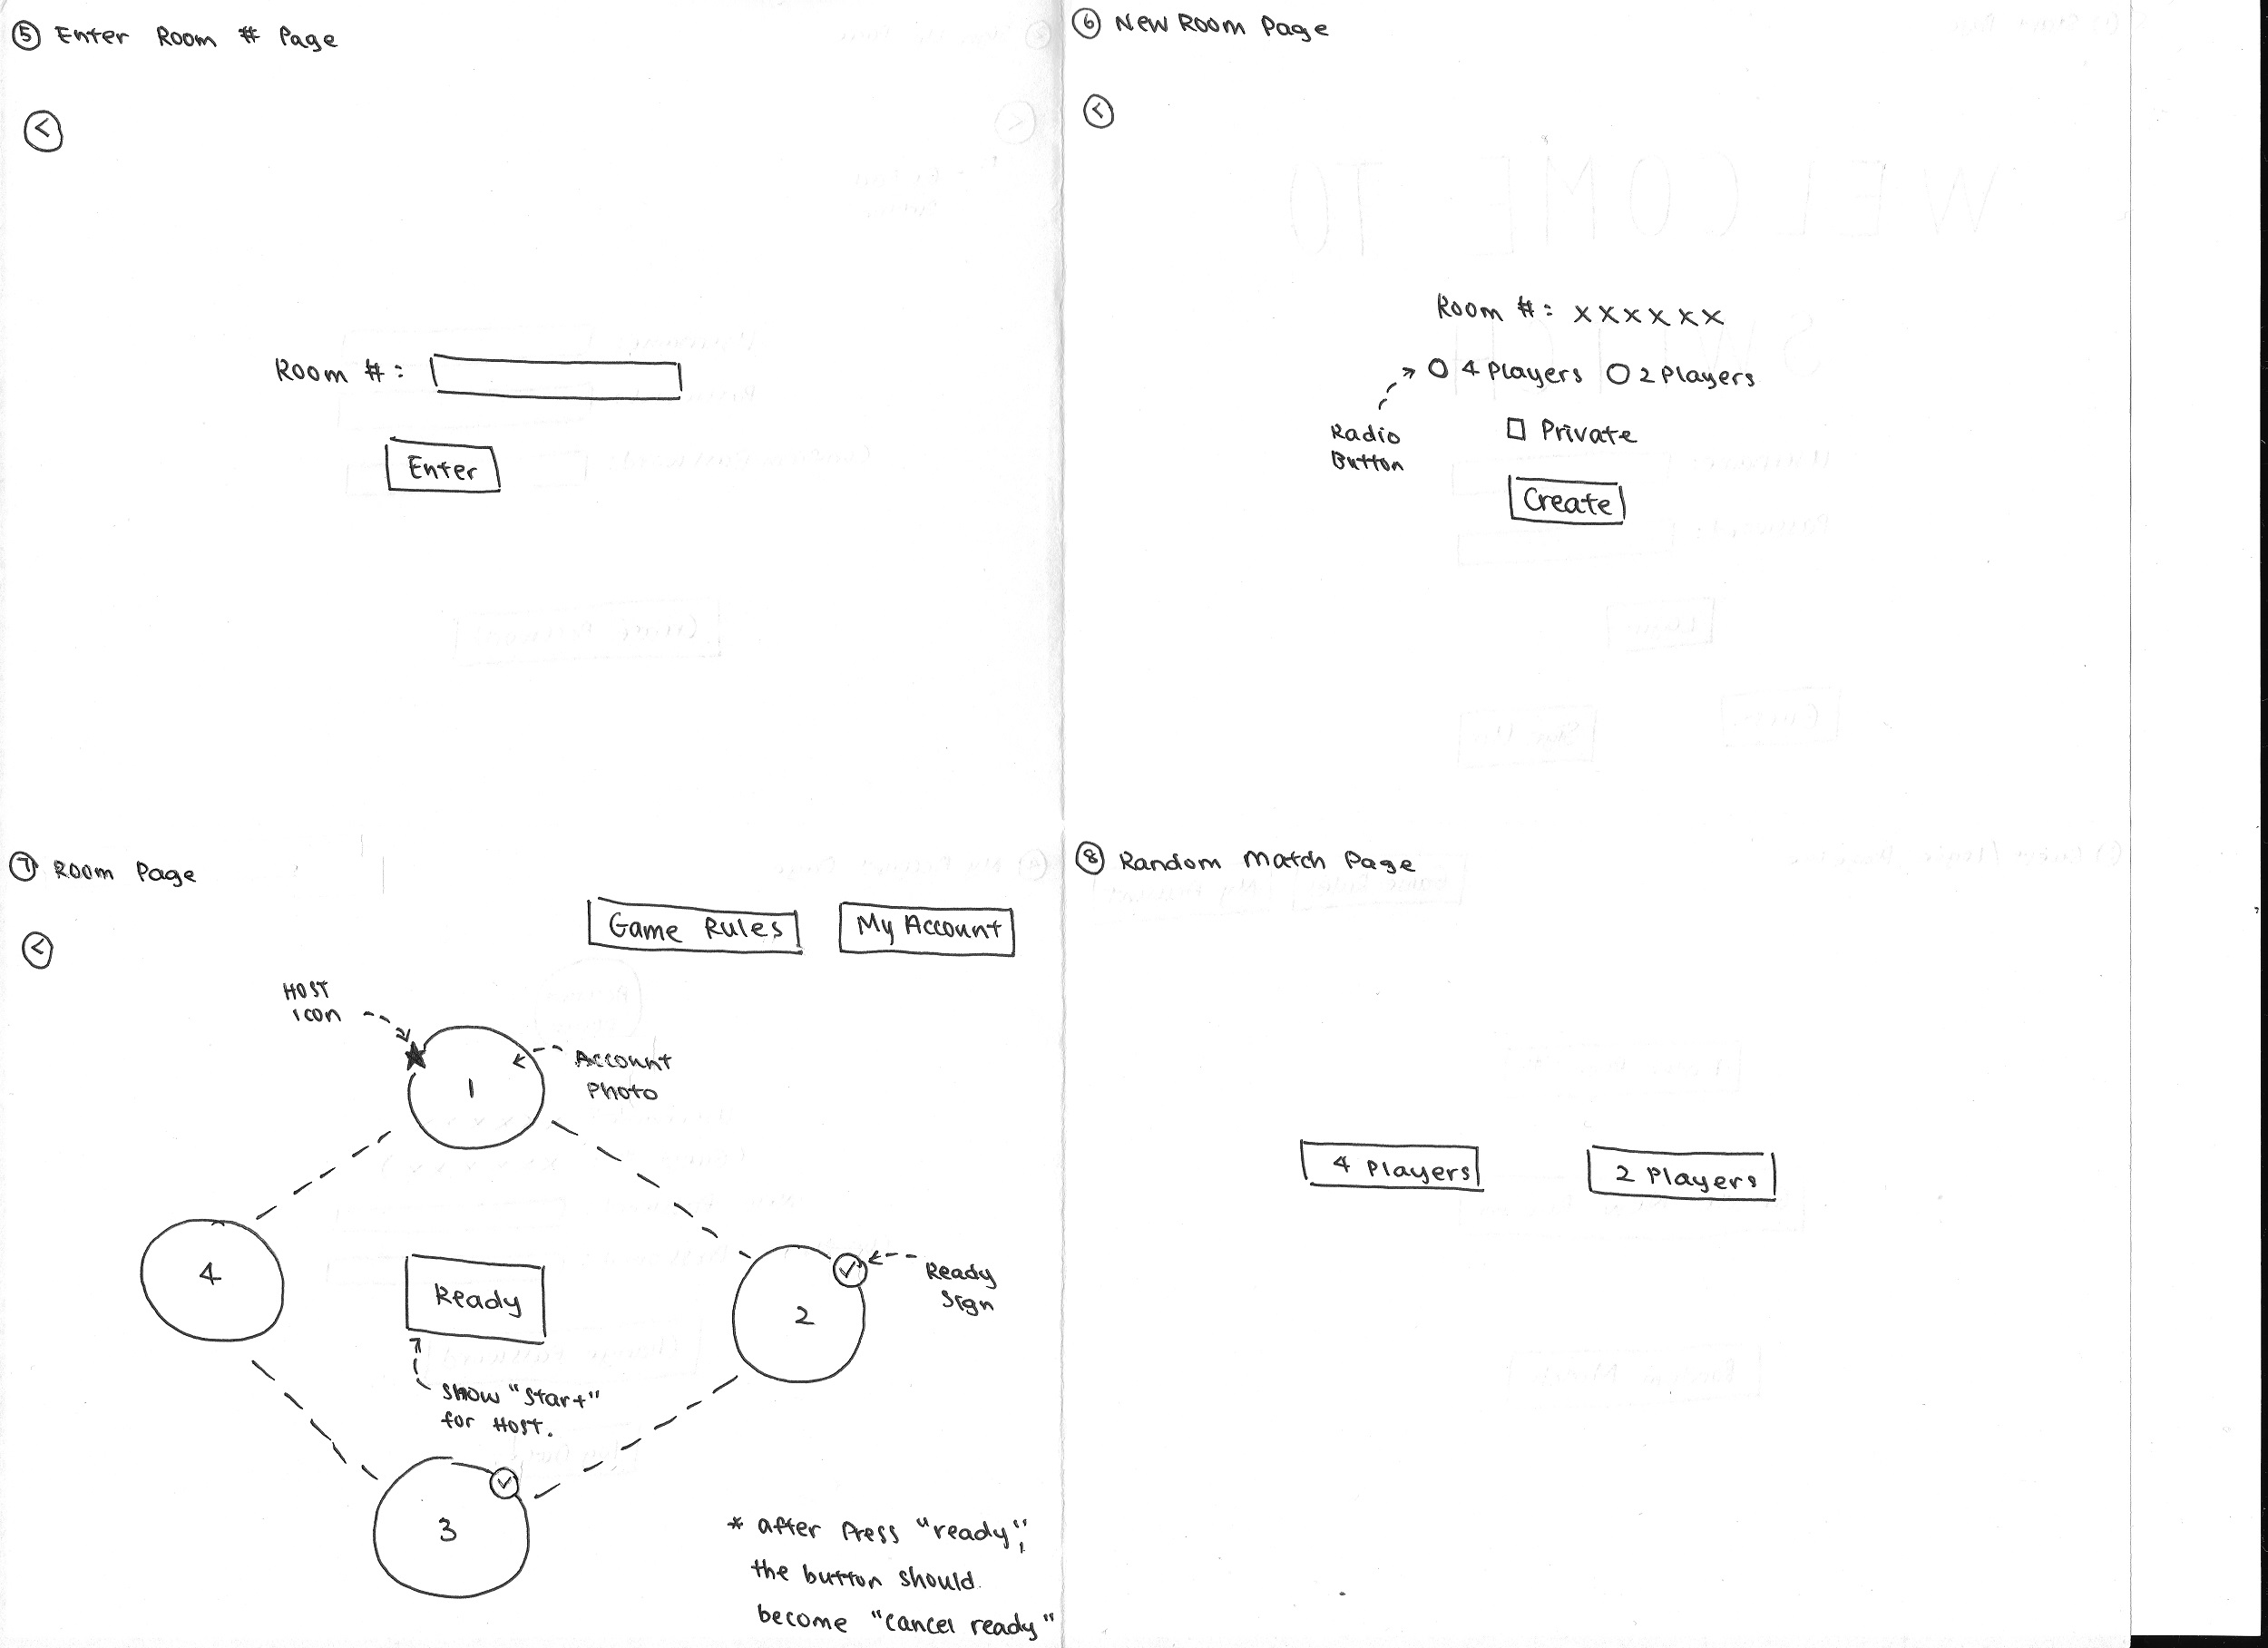 ⑤ Enter Room # Page
<
Room # :
Enter
⑥ New Room Page
<
Room # : xxxxxx
4 Players 2 Players
Radio
Button
Private
Create
⑦ Room Page
<
Game Rules
My Account
HOST
icon
Account
Photo
1
4
Ready
2
Ready
Sign
Show "Start"
for HOST.
3
* after Press "ready",
the button should
become "cancel ready"
⑧ Random Match Page
4 Players
2 Players
WELCOME TO